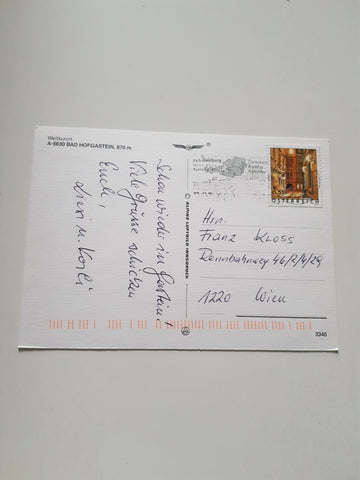 Weltkurort
A-5630 BAD HOFGASTEIN, 870 m
Schon wieder in Gastein!
Viele Grüsse schicken
Euch,
Lieri u. Karli
© ALPINE LUFTBILD INNSBRUCK
Salzburg
ÖSTERREICH
Hrn.
Franz KLOSS
Rennbahnweg 46/2/4/29
1220 Wien
3340